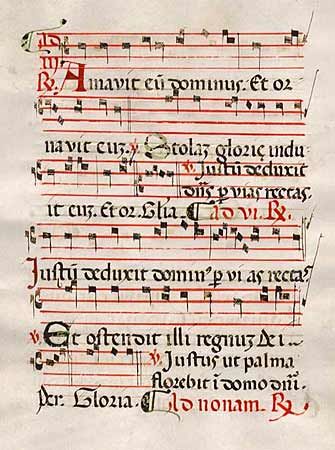 Ad
iij
℟. Amavit eū dominus. Et or
navit euʒ. ℣ Stolaʒ glorię indu
Justū deduxit
dn̄s p̱ vias rectas.
it euʒ. Et or. Glīa. Ad vi. ℟.
Justū deduxit domin⁹ p̱ vi as recta⁹
℣ Et ostendit illi regnuʒ de i
℣ Justus ut palma
florebit ī domo dn̄i.
Per. Gloria. Ad nonam. ℟